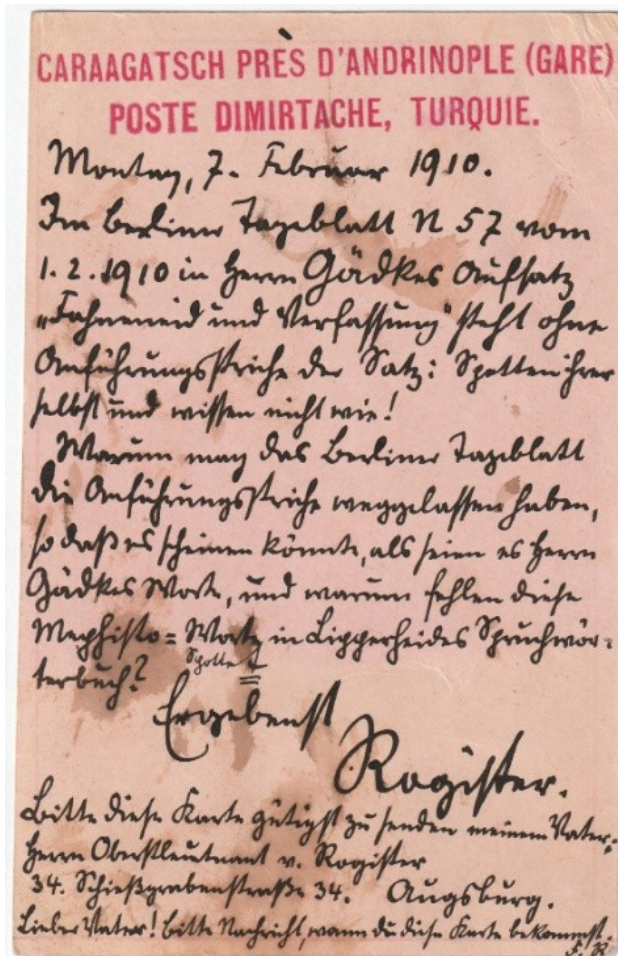 CARAAGATSCH PRÈS D'ANDRINOPLE (GARE)
POSTE DIMIRTACHE, TURQUIE.
Montag, 7. Februar 1910.
Im Berliner Tageblatt N 57 vom
1.2.1910 in Herrn Gädkes Aufsatz
„Fahneneid und Verfassung" steht ohne
Anführungsstriche der Satz: Spotten ihrer
selbst und wissen nicht wie!
Warum mag das Berliner Tageblatt
die Anführungsstriche weggelassen haben,
so daß es scheinen könnte, als seien es Herrn
Gädkes Worte, und warum fehlen diese
Mephisto=Worte in Lipperheides Spruchwör-
terbuch?
Spotte
Ergebenst
Rogister.
Bitte diese Karte gütigst zu senden meinem Vater:
Herrn Oberstleutnant v. Rogister
34. Schießgrabenstraße 34. Augsburg.
Lieber Vater! Bitte Nachricht, wann du diese Karte bekommst.
F. R.